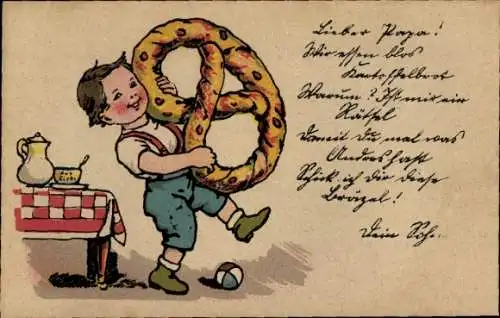 Lieber Papa!
Wir essen blos
Kartoffelbrot
Warum? Ist mir ein
Rätsel
Damit Du mal was
Andres hast
Schick ich Dir diese
Brätzel!
Dein Sohn.